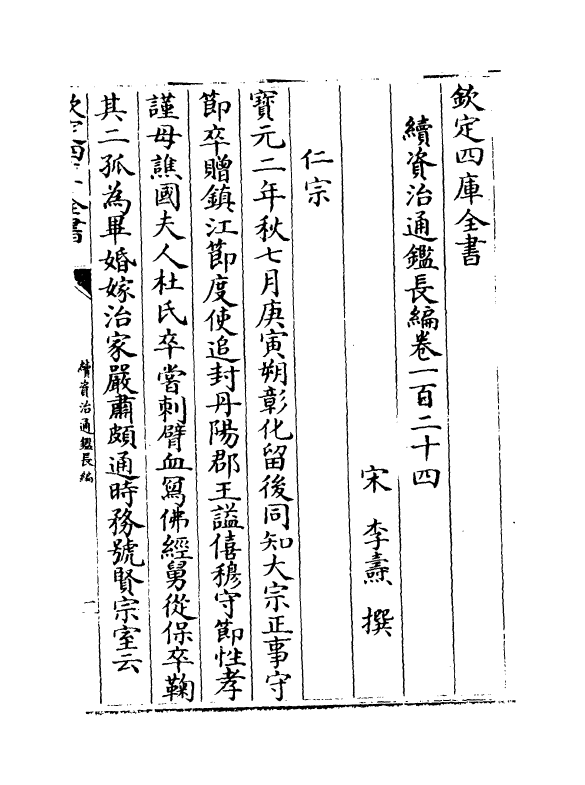 欽定四庫全書
續資治通鑑長編卷一百二十四
宋 李燾 撰
仁宗
寳元二年秋七月庚寅朔彰化留後同知大宗正事守
節卒贈鎮江節度使追封丹陽郡王謚僖穆守節性孝
謹母譙國夫人杜氏卒嘗刺臂血寫佛經舅從保卒鞠
其二孤為畢婚嫁治家嚴肅頗通時務號賢宗室云
欽定四庫全書
續資治通鑑長編
一